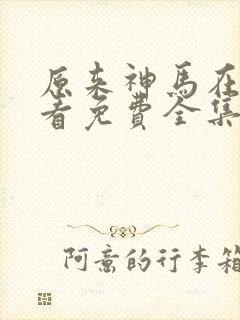 原来神马在
看免费全集
阿意的行李箱